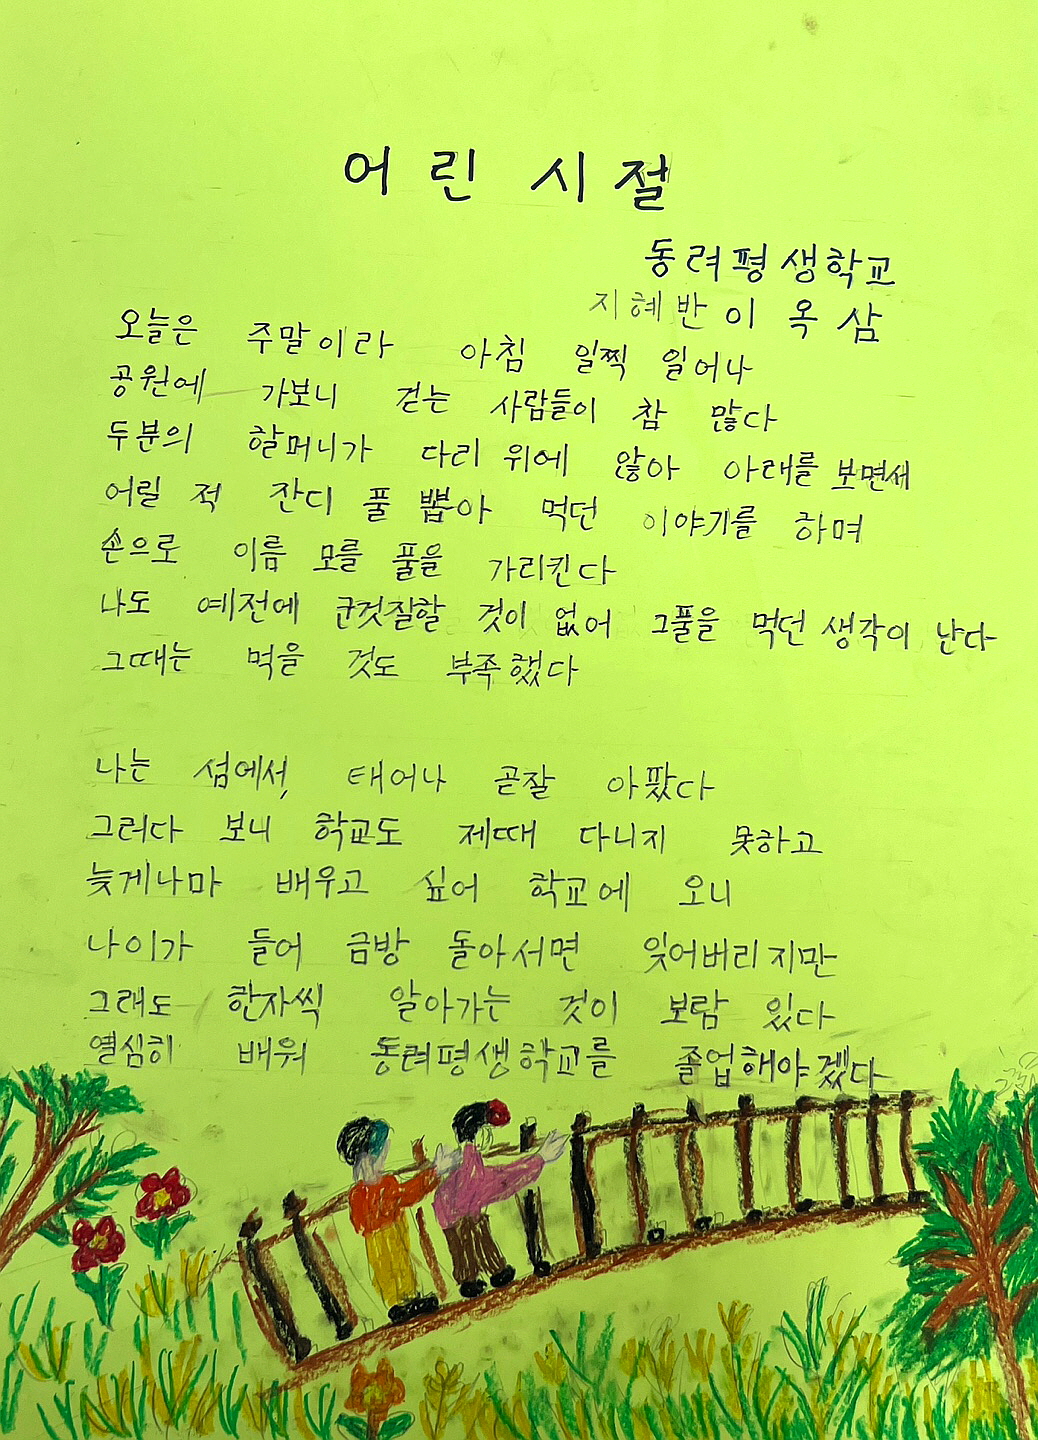 어린 시절
동려평생학교
지혜반 이옥삼
오늘은 주말이라 아침 일찍 일어나
공원에 가보니 걷는 사람들이 참 많다
두분의 할머니가 다리 위에 않아 아래를 보면세
어릴 적 잔디 풀 뽑아 먹던 이야기를 하며
손으로 이름 모를 풀을 가리킨다
나도 예전에 군것질할 것이 없어 그풀을 먹던 생각이 난다
그때는 먹을 것도 부족했다
나는 섬에서, 태어나 곧잘 아팠다
그러다 보니 학교도 제때 다니지 못하고
늦게나마 배우고 싶어 학교에 오니
나이가 들어 금방 돌아서면 잊어버리지만
그래도 한자씩 알아가는 것이 보람 있다
열심히 배워 동려평생학교를 졸업해야겠다